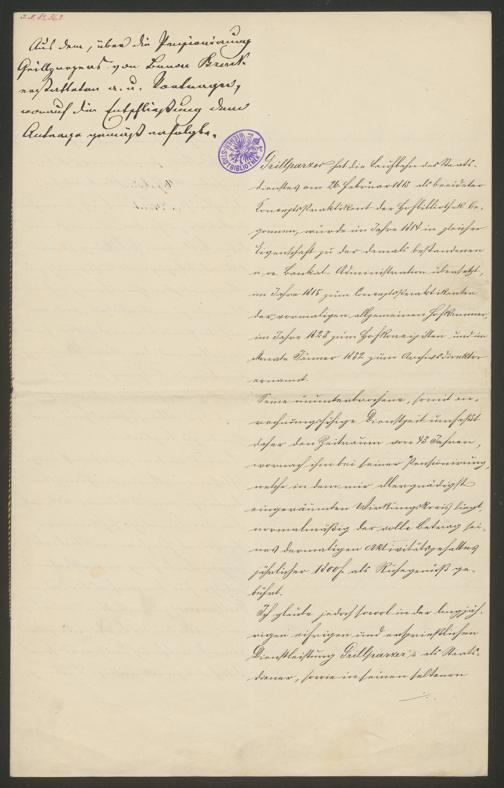 Aus dem, über die Pensionirung
Grillparzers von Baron Bruck
erstatteten a. u. Vortrages,
worauf die Entschließung dem
Antrage gemäß erfolgte.
Grillparzer hat die Laufbahn des Staats-
dienstes am 26. Februar 1813 als beeideter
Conceptspraktikant der Hofbibliothek be-
gonnen, wurde im Jahre 1814 in gleicher
Eigenschaft zu der damals bestandenen
n. oe. Bankal-Administration übersetzt,
im Jahre 1815 zum Conceptspraktikanten
der vormaligen allgemeinen Hofkammer,
im Jahre 1823 zum Hofkonzipisten und im
Monate Jänner 1832 zum Archivsdirektor
ernannt.
Seine ununterbrochene, somit an-
rechnungsfähige Dienstzeit umfaßt
daher den Zeitraum von 43 Jahren,
wornach ihm bei seiner Pensionirung,
welche in dem mir allergnädigst
eingeräumten Wirkungskreis liegt,
normalmäßig der volle Betrag sei-
nes dermaligen Aktivitätsgehaltes
jährlicher 1800 f als Ruhegenuß ge-
bührt.
Ich glaube jedoch sowol in der langjäh-
rigen eifrigen und ersprießlichen
Dienstleistung Grillparzer's als Staats-
diener, sowie in seinen seltenen